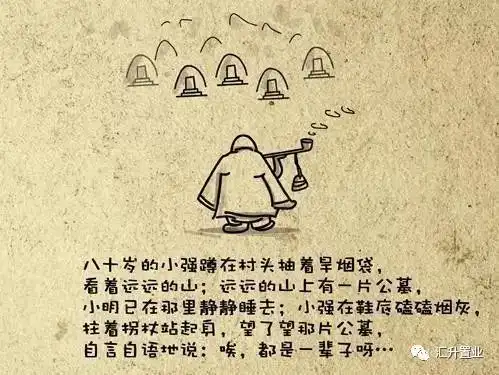 八十岁的小强蹲在村头抽着旱烟袋，
看着远远的山；远远的山上有一片公墓，
小明已在那里静静睡去；小强在鞋底磕磕烟灰，
拄着拐杖站起身，望了望那片公墓，
自言自语地说：唉，都是一辈子呀…
汇升置业